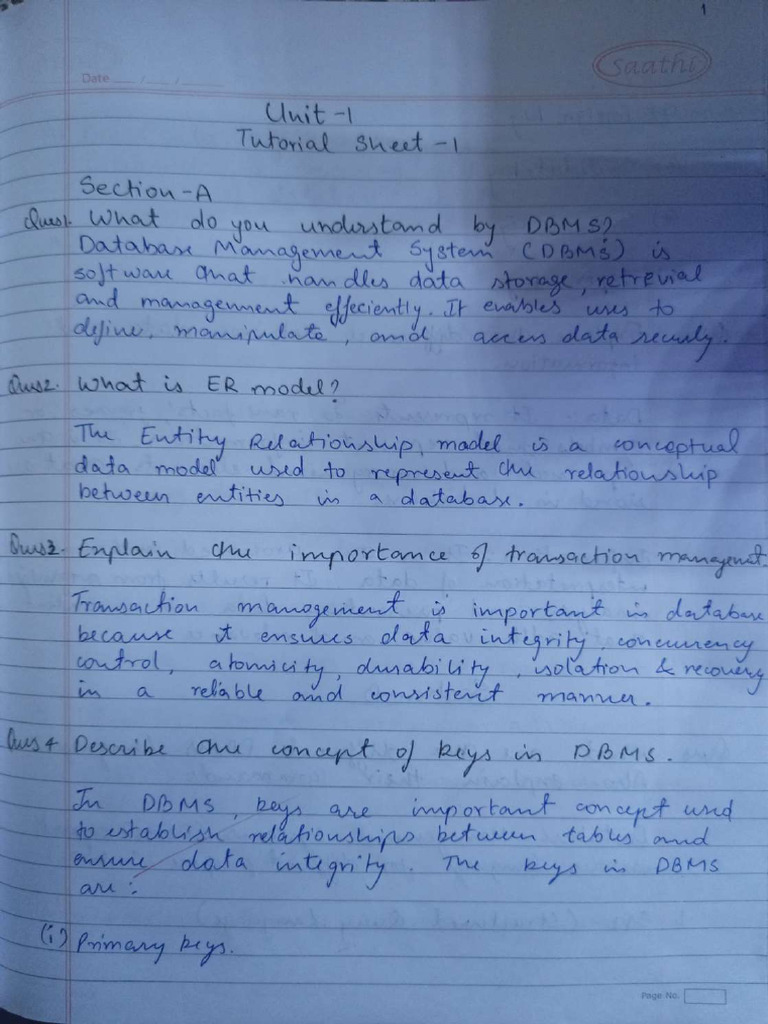 1
saathi
Date
Unit-1
Tutorial Sheet-1
Section-A
Ques1. What do you understand by DBMS?
Database Management System (DBMS) is
software that handles data storage, retrevial
and management effeciently. It enables uses to
define, manipulate, and access data securly.
Ques2. What is ER model?
The Entity Relationship model is a conceptual
data model used to represent the relationship
between entities in a database.
Ques3. Explain the importance of transaction managemet.
Transaction management is important in database
because it ensures data integrity, concurrency
control, atomicity, durability, isolation & recovery
in a reliable and consistent manner.
Ques4 Describe the concept of keys in DBMS.
In DBMS, keys are important concept used
to establish relationships between tables and
ensure data integrity. The keys in DBMS
are:
(i) Primary keys.
Page No.